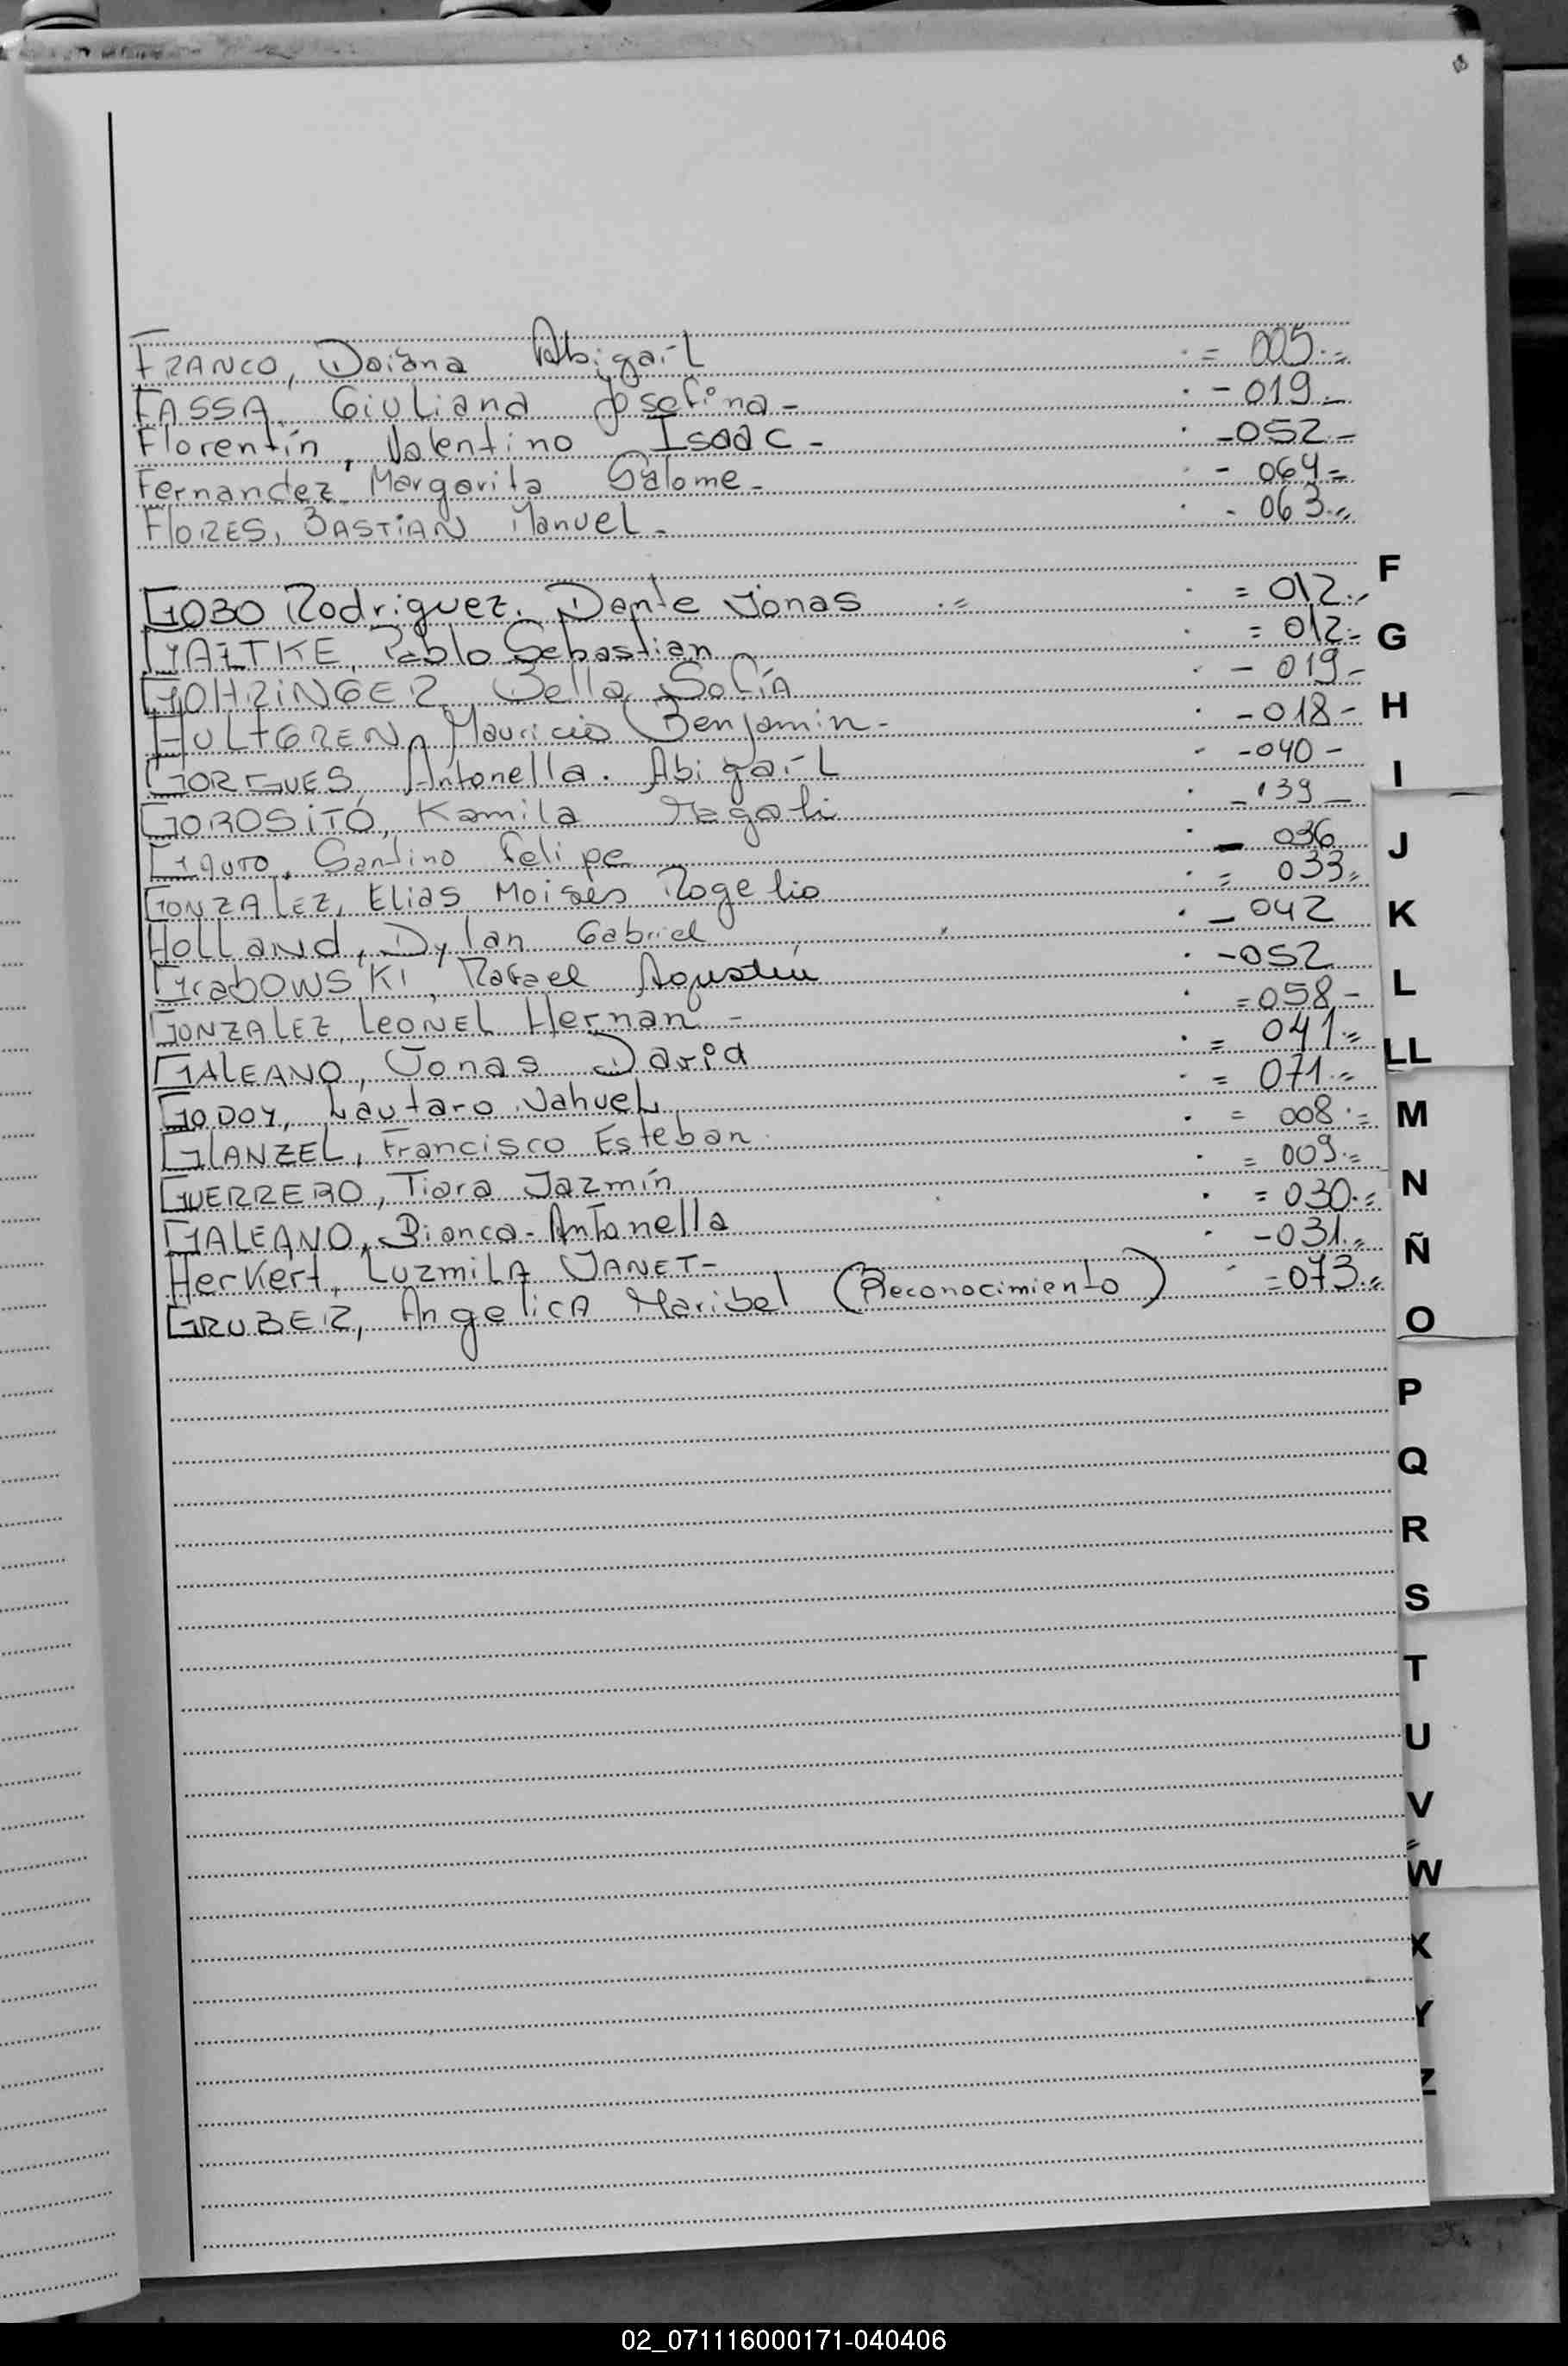 FRANCO, Daiana Abigail = 005.=
FASSA, Giuliana Josefina - - 019 -
Florentín, Valentino Isaac - - 052 -
Fernandez Margarita Salome - - 064 =
FLORES, BASTIAN Manuel - - 063.=
F
GOBO Rodriguez. Dante Jonas .= = 012.,
G
MAITKE, Pablo Sebastian = 012 =
GOHRINGER Bella Sofía - 019 -
H
HULTGREN, Mauricio Benjamin - - 018 -
GORGUES Antonella. Abigail - 040 -
I
GOROSITO, Kamila Magali - 139 -
GAUTO, Santino Felipe - 036
J
GONZALEZ, Elias Moises Rogelio = 033=
HOLLAND, Dylan Gabriel - 042
K
GRABOWSKI, Rafael Agustín - 052
L
GONZALEZ, LEONEL Hernan - = 058 -
GALEANO, Jonas David = 041.=
LL
GODOY, Lautaro Nahuel = 071.=
GLANZEL, Francisco Esteban = 008.=
M
GUERRERO, Tiara Jazmín = 009.=
N
GALEANO, Bianca - Antonella = 030.=
Herkert, LUZMILA JANET - - 031.=
Ñ
GRUBER, Angelica Maribel (Reconocimiento) = 073.=
O
P
Q
R
S
T
U
V
W
X
Y
Z
02_071116000171-040406